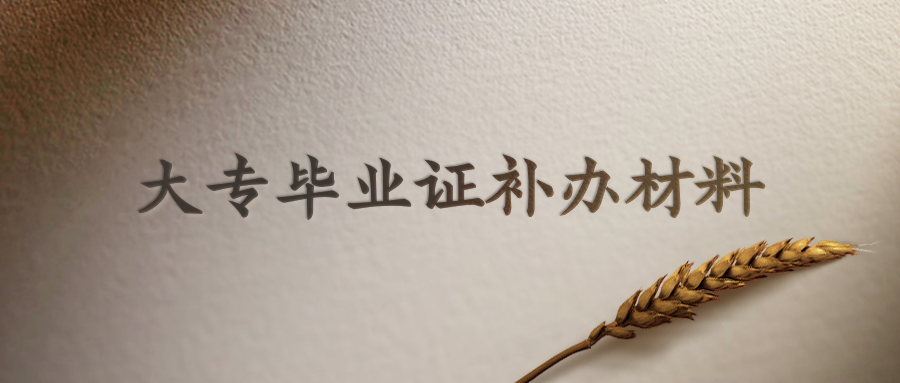 大专毕业证补办材料